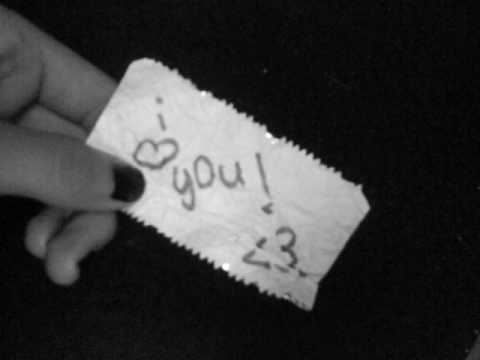 i
♡ you!
<3